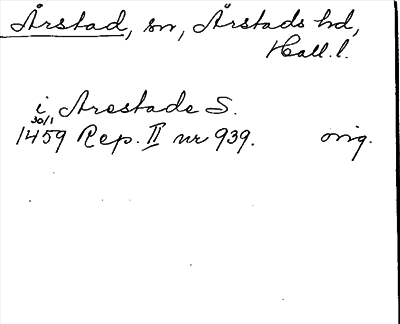 Årstad, sn, Årstads hd,
Hall. l.
i Arestade S.
30/1
1459 Rep. II nr 939. orig.